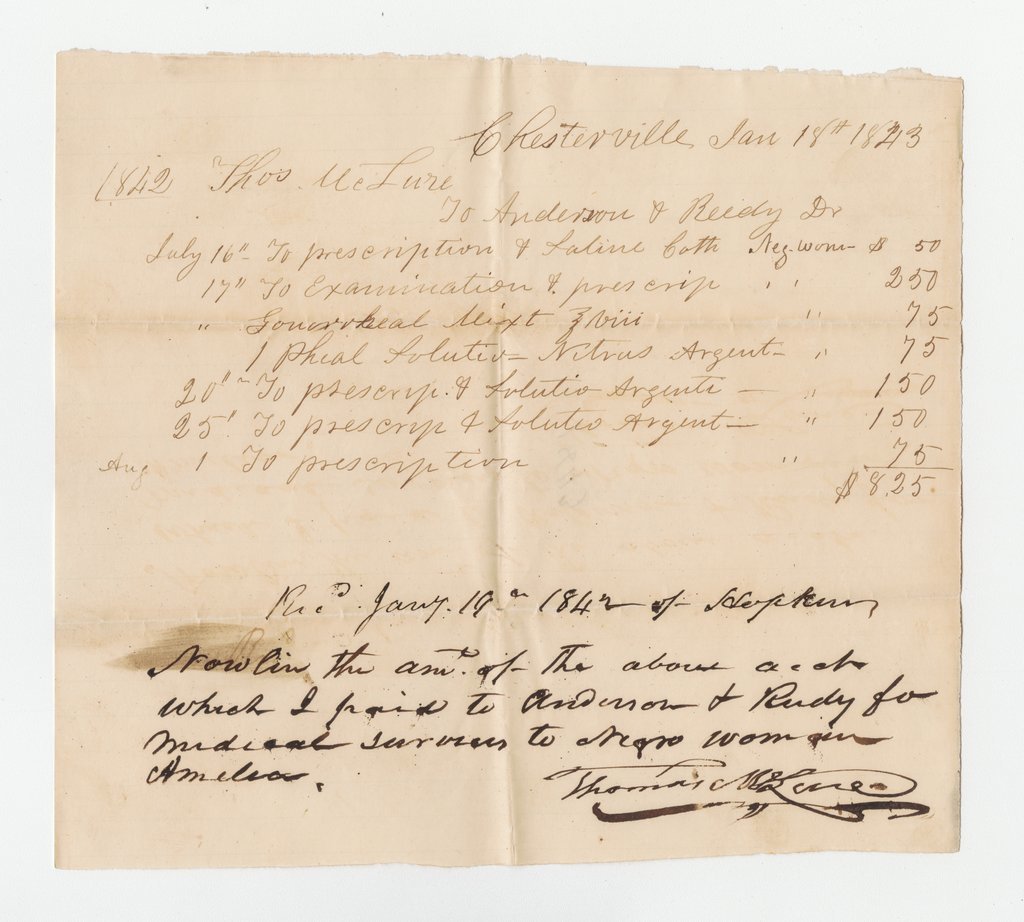 Chesterville Jan 18th 1843
1842 Thos McLure
To Anderson & Reedy Dr
July 16" To prescription & Saline Cath Neg. wom- $ 50
17" To Examination & prescrip " " 250
" Gonorrheal Mixt ʒ viii " 75
1 Phial Solutio- Nitras Argent- " 75
20" To prescrip. & Solutio Argenti - " 150
25' To prescrip & Solutio Argent- " 150
Aug 1 To prescription " 75
$ 8,25
Recd. Jany. 19th 1842 of Hopkins
Nowlin the amt. of the above acct
which I paid to Anderson & Reedy for
Medical services to Negro woman
Amelia.
Thomas McLure